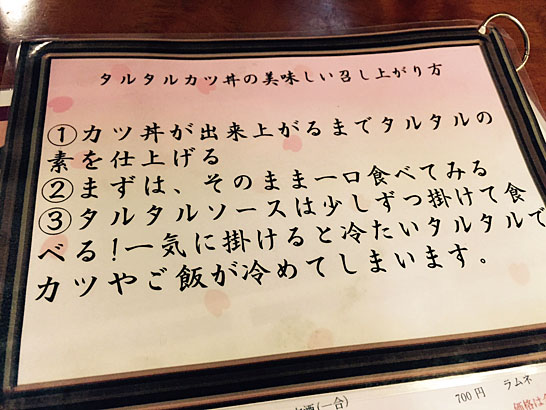 タルタルカツ丼の美味しい召し上がり方
①カツ丼が出来上がるまでタルタルの
素を仕上げる
②まずは、そのまま一口食べてみる
③タルタルソースは少しずつ掛けて食
べる！一気に掛けると冷たいタルタルで
カツやご飯が冷めてしまいます。
酒(一合)
700円
ラムネ
価格は